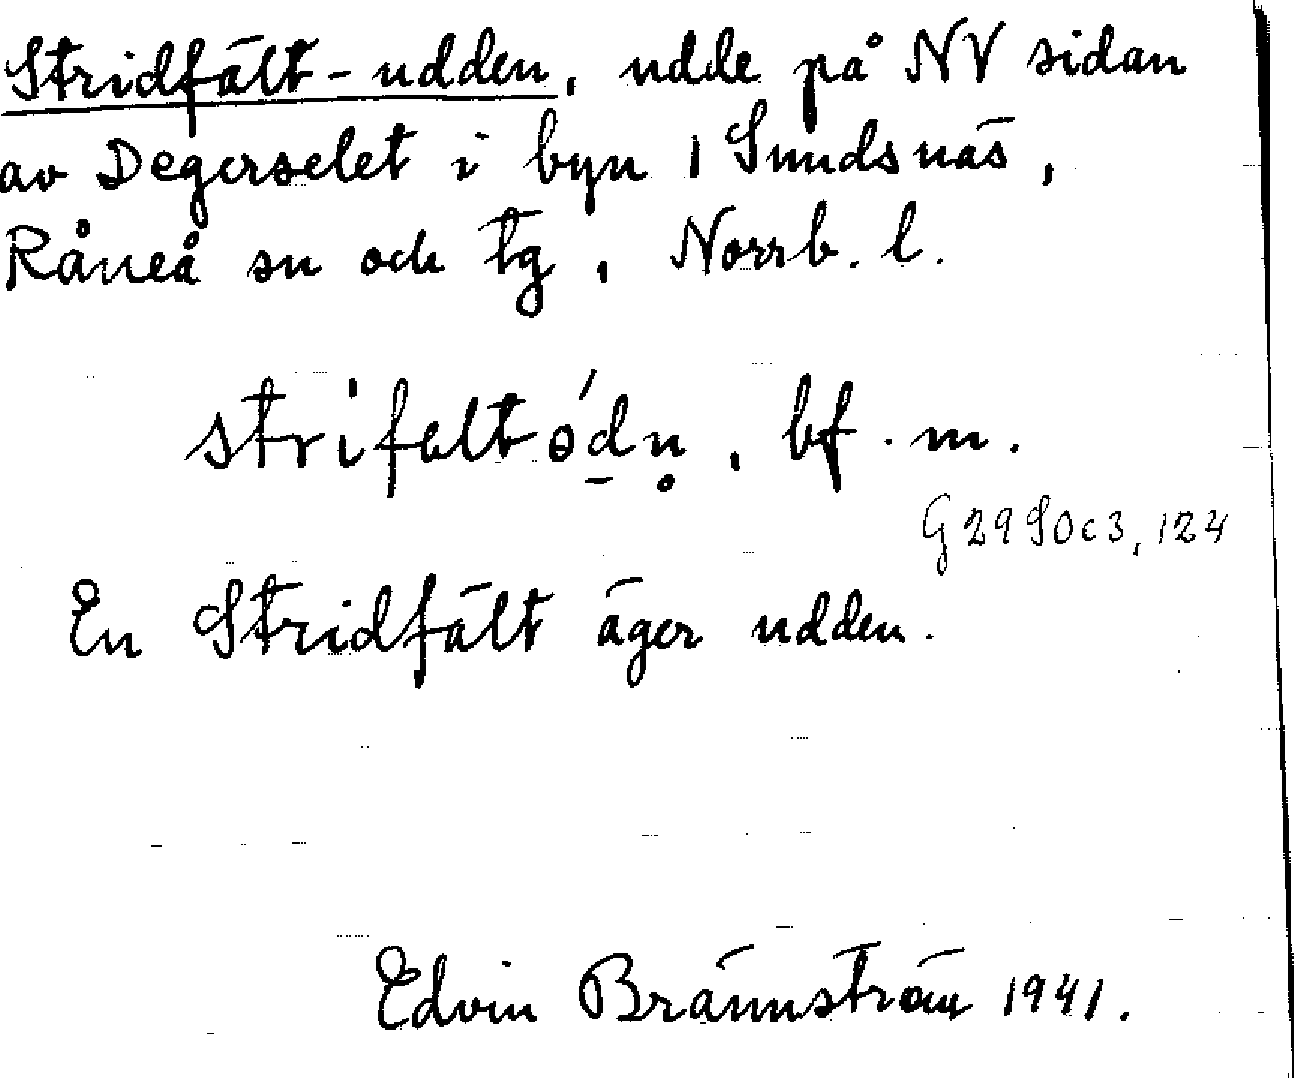 Stridfält-udden, udde på NV sidan
av Degerselet i byn 1 Sundsnäs,
Råneå sn och tg, Norrb. l.
strifaltódn̥, bf. m.
G 29 S0c3, 124
En Stridfält äger udden.
Edvin Brännström 1941.